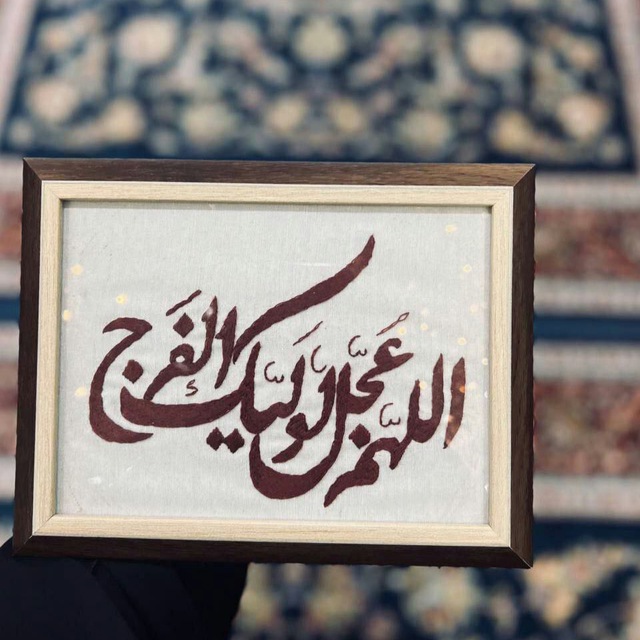 اللّهمّ عَجِّل لِوَلیِّکَ الفَرَج